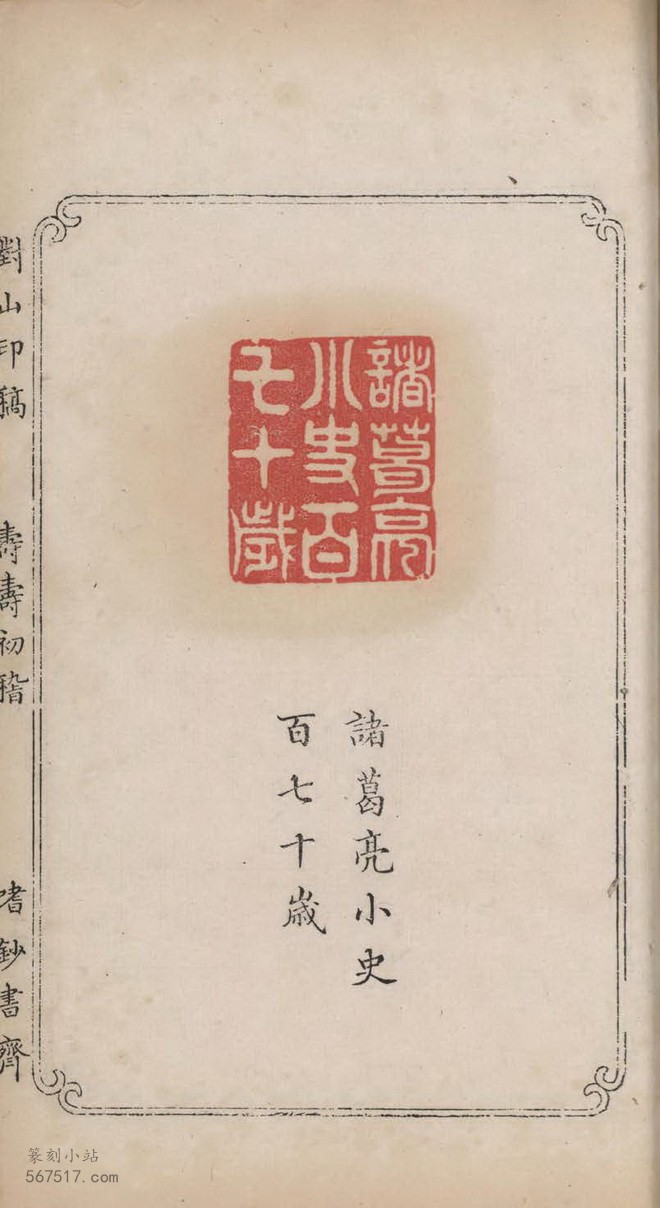 諸葛亮
小史百
七十歲
諸葛亮小史
百七十歲
對山印稿 壽壽初稽 嗜鈔書齋
篆刻小站
567517.com